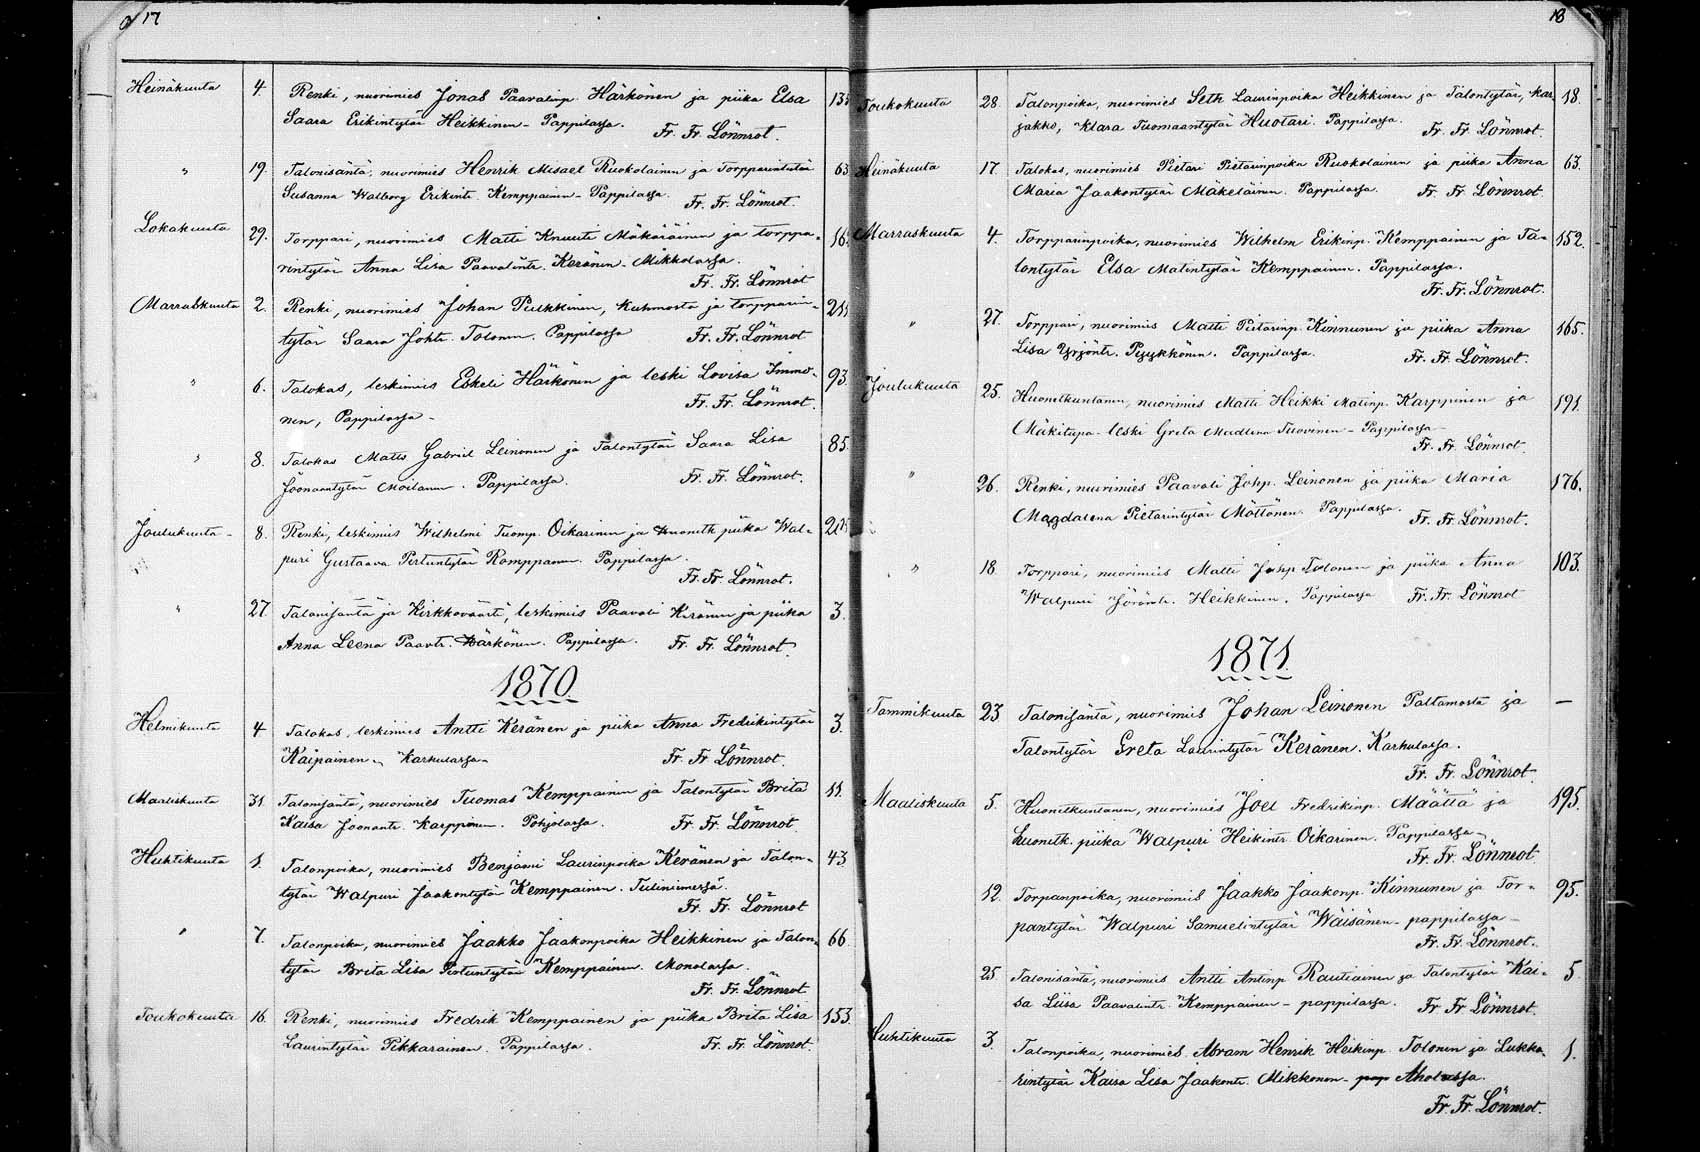 17
Heinäkuuta 4. Renki, nuorimies Jonas Paavalinp. Härkönen ja piika Elsa
Saara Erikintytär Heikkinen - Pappilassa. Fr. Fr. Lönnrot.
" 19. Talonisäntä, nuorimies Henrik Misael Ruokolainen ja Torpparintytär 63
Susanna Walborg Erikintr. Kemppainen - Pappilassa. Fr. Fr. Lönnrot
Lokakuuta 29. Torppari, nuorimies Matti Knuuti Mäkäräinen ja torppa-
rintytär Anna Lisa Paavalintr. Keränen - Mikkolassa.
Fr. Fr. Lönnrot
Marraskuuta 2. Renki, nuorimies Johan Pulkkinen, Kuhmosta ja torpparin-
tytär Saara Johtr. Tolonen. Pappilassa Fr. Fr. Lönnrot
" 6. Talokas, leskimies Eskeli Härkönen ja leski Lovisa Immo- 93.
nen, Pappilassa - Fr. Fr. Lönnrot.
" 8. Talokas Matts Gabriel Leinonen ja Talontytär Saara Lisa 85.
Joonaantytär Moilanen. Pappilassa. Fr. Fr. Lönnrot.
Joulukuuta - 8. Renki, leskimies Wilhelmi Tuomp. Oikarinen ja huonitk piika Wal-
puri Gustaava Pertuntytär Romppanen. Pappilassa.
Fr. Fr. Lönnrot.
" 27. Talonisäntä ja Kirkkoväärti, leskimies Paavali Keränen ja piika 3.
Anna Leena Paavtr. Härkönen. Pappilassa. Fr. Fr. Lönnrot.
1870.
Helmikuuta 4 Talokas, leskimies Antti Keränen ja piika Anna Fredrikintytär 3.
Kaipainen, Karhulassa - Fr. Fr. Lönnrot.
Maaliskuuta 31. Talonisäntä, nuorimies Tuomas Kemppainen ja Talontytär Brita 11.
Kaisa Joonantr. Karppinen. Pohjolassa. Fr. Fr. Lönnrot
Huhtikuuta 1. Talonpoika, nuorimies Benjami Laurinpoika Keränen ja Talon- 43
tytär Walpuri Jaakontytär Kemppainen. Tuliniemessä.
Fr. Fr. Lönnrot
" 7. Talonpoika, nuorimies Jaakko Jaakonpoika Heikkinen ja Talon- 66
tytär Brita Lisa Pertuntytär Kemppainen. Monolassa.
Fr. Fr. Lönnrot
Toukokuuta 16. Renki, nuorimies Fredrik Kemppainen ja piika Brita Lisa 153.
Laurintytär Pikkarainen. Pappilassa. Fr. Fr. Lönnrot.
18
Toukokuuta 28. Talonpoika, nuorimies Seth Laurinpoika Heikkinen ja Talontytär, kar 18.
jakko, Klara Tuomaantytär Huotari. Pappilassa. Fr. Fr. Lönnrot.
Heinäkuuta 17. Talokas, nuorimies Pietari Pietarinpoika Ruokolainen ja piika Anna 63.
Maria Jaakontytär Mäkeläinen. Pappilassa. Fr. Fr. Lönnrot
Marraskuuta 4. Torpparinpoika, nuorimies Wilhelm Erikinp. Kemppainen ja Ta- 152.
lontytär Elsa Matintytär Kemppainen. Pappilassa.
Fr. Fr. Lönnrot.
" 27. Torppari, nuorimies Matti Pietarinp. Kinnunen ja piika Anna 165.
Lisa Yrjöntr. Pyykkönen. Pappilassa. Fr. Fr. Lönnrot.
Joulukuuta 25. Huonitkuntanen, nuorimies Matti Heikki Matinp. Karppinen ja 191.
Mäkitupa-leski Greta Madlena Tuovinen - Pappilassa -
Fr. Fr. Lönnrot.
" 26. Renki, nuorimies Paavali Johp. Leinonen ja piika Maria 176.
Magdalena Pietarintytär Möttönen. Pappilassa. Fr. Fr. Lönnrot.
" 18. Torppari, nuorimies Matti Johp Tolonen ja piika Anna 103.
Walpuri Heikkinen. Pappilassa Fr. Fr. Lönnrot
1871.
Tammikuuta 23 Talonisäntä, nuorimies Johan Leinonen Paltamosta ja —
Talontytär Greta Laurintytär Keränen. Karhulassa.
Fr. Fr. Lönnrot.
Maaliskuuta 5. Huonitkuntanen, nuorimies Joel Fredrikinp. Määttä ja 195.
huonitk. piika Walpuri Heikintr. Oikarinen. Pappilassa -
Fr. Fr. Lönnrot
12. Torpanpoika, nuorimies Jaakko Jaakonp. Kinnunen ja Tor- 95.
pantytär Walpuri Samuelintytär Wäisänen - pappilassa -
Fr. Fr. Lönnrot.
25 Talonisäntä, nuorimies Antti Antinp Rautiainen ja Talontytär Kai- 5.
sa Liisa Paavalintr. Kemppainen - pappilassa. Fr Fr Lönnrot.
Huhtikuuta 3. Talonpoika, nuorimies Abram Henrik Heikinp. Tolonen ja Lukka- 1.
rintytär Kaisa Lisa Jaakontr. Mikkonen - pap Aholassa.
Fr. Fr. Lönnrot.